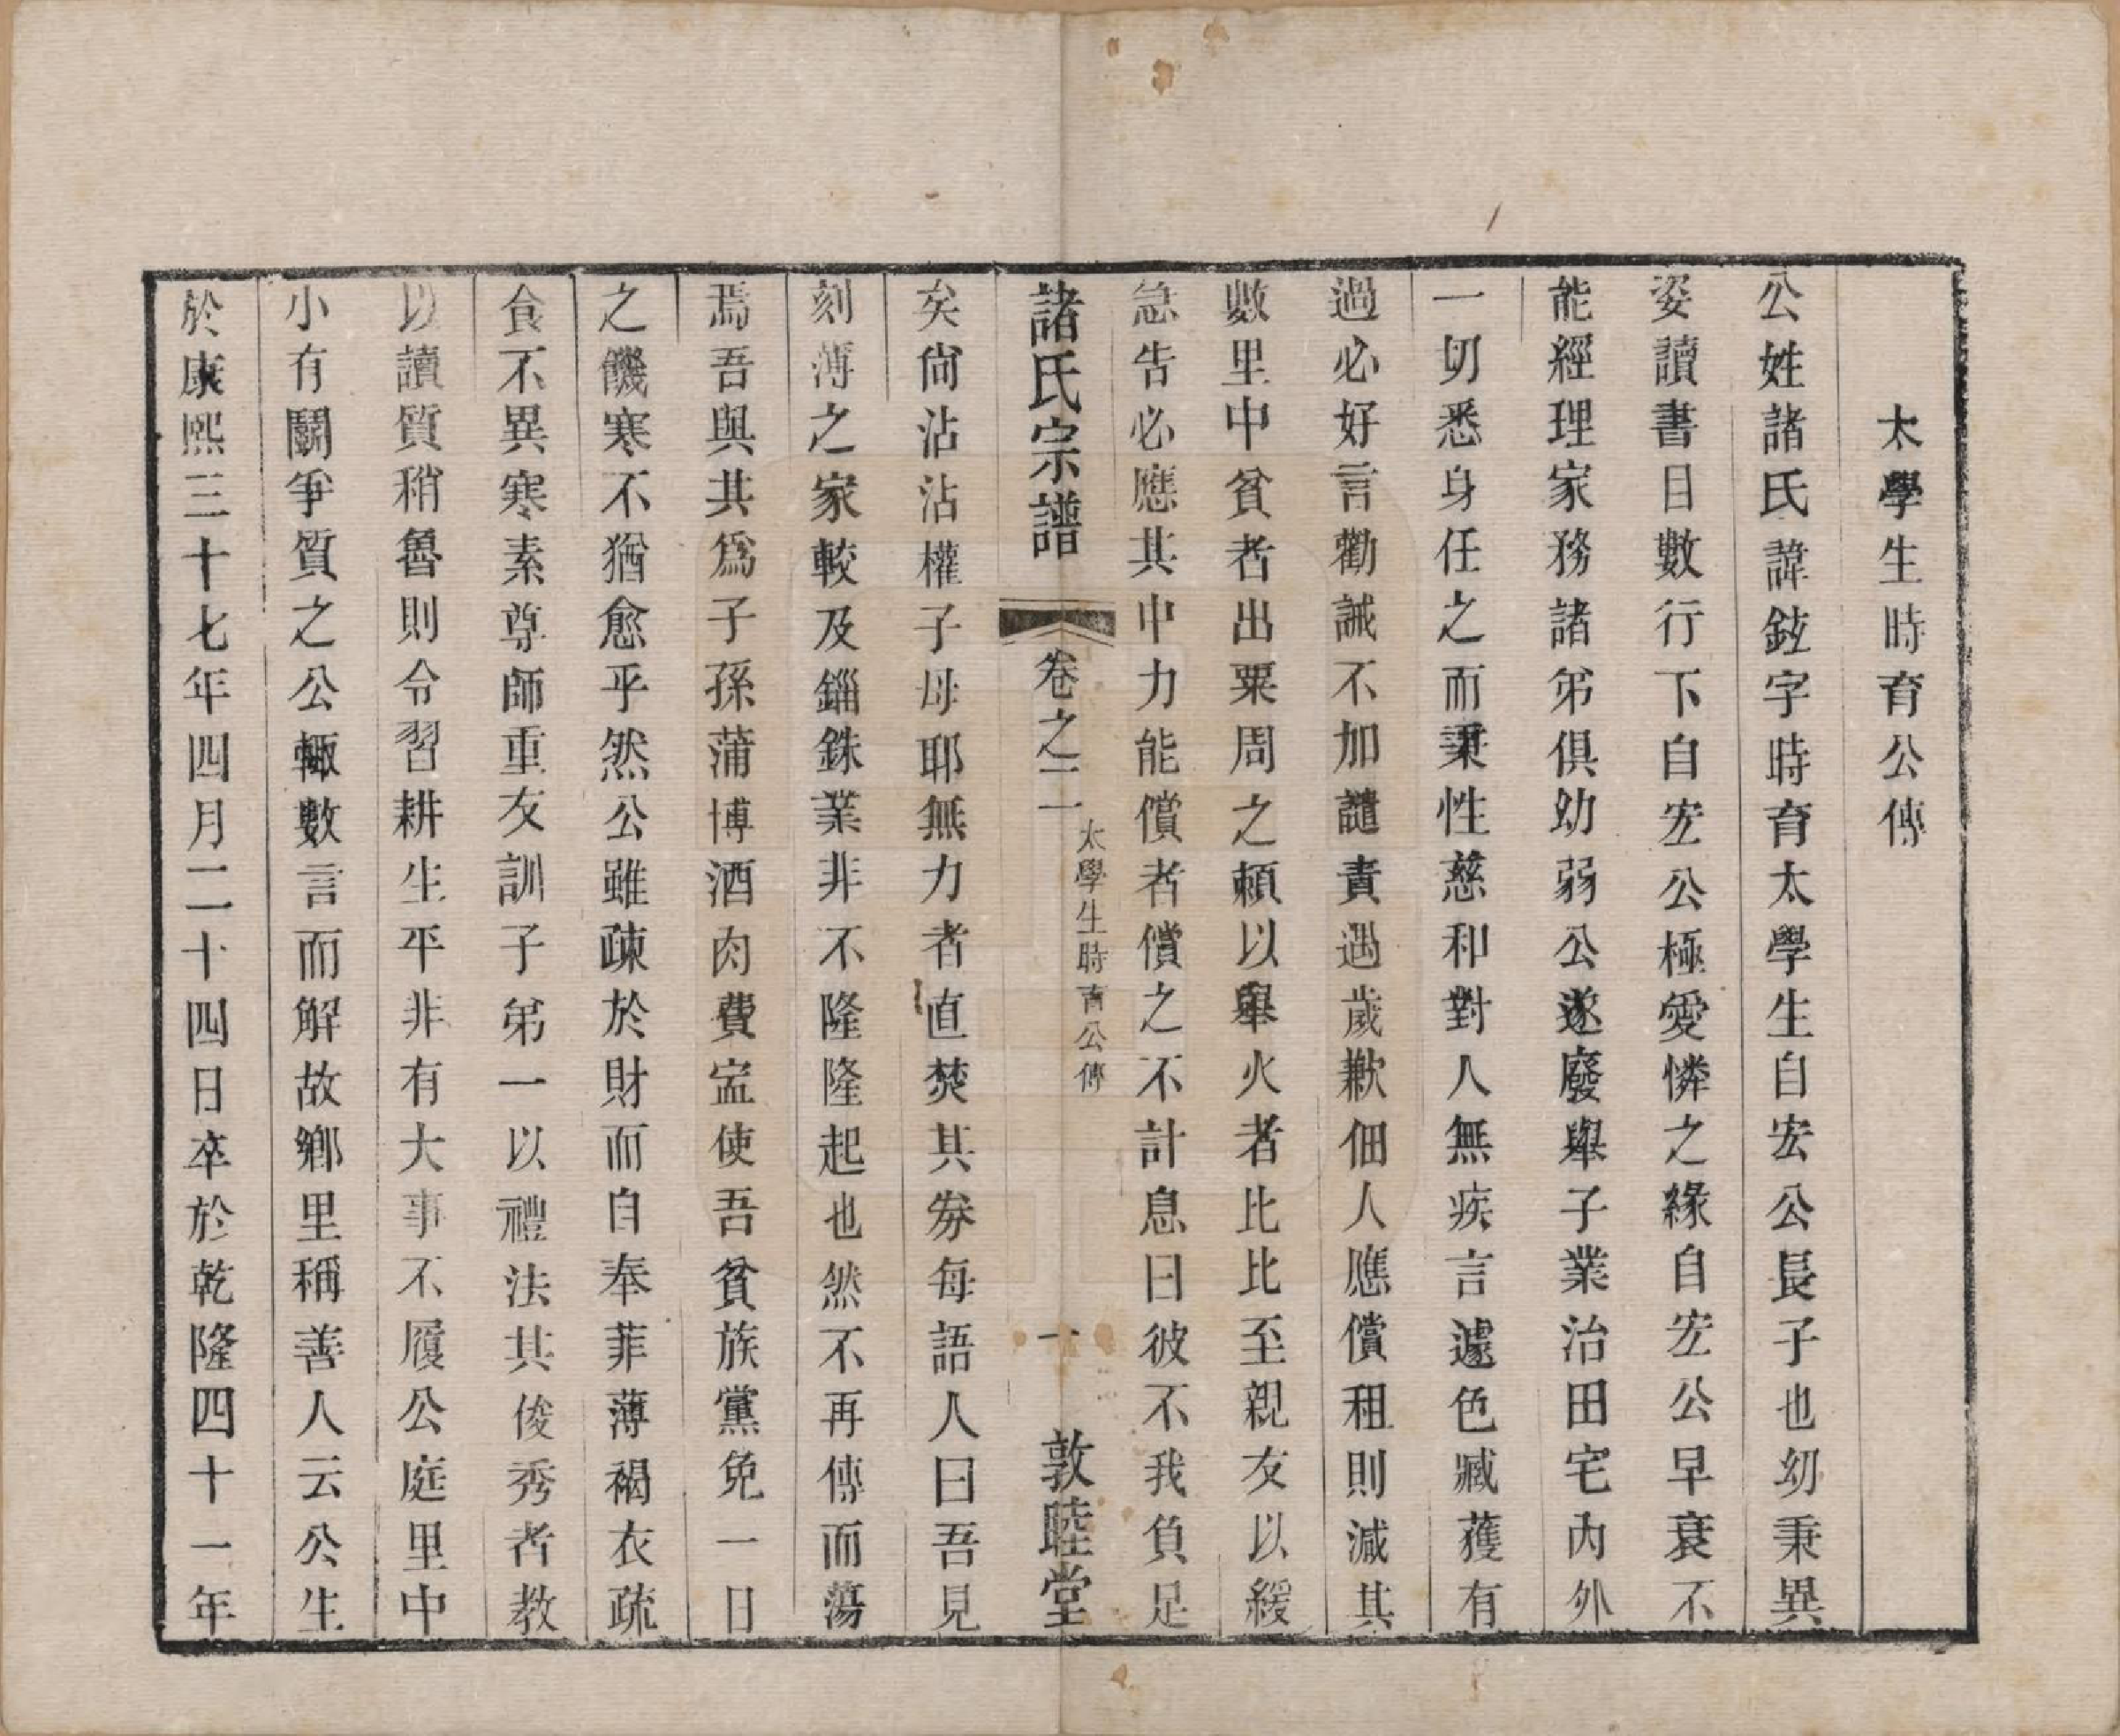 太學生時育公傳
公姓諸氏諱鉉字時育太學生自宏公長子也幼秉異
姿讀書日數行下自宏公極愛憐之緣自宏公早衰不
能經理家務諸弟俱幼弱公遂廢舉子業治田宅內外
一切悉身任之而秉性慈和對人無疾言遽色臧獲有
過必好言勸誡不加譴責遇歲歉佃人應償租則減其
數里中貧者出粟周之賴以舉火者比比至親友以緩
急告必應其中力能償者償之不計息曰彼不我負足
諸氏宗譜 卷之二 太學生時育公傳 一 敦睦堂
矣尙沾沾權子母耶無力者直焚其券每語人曰吾見
刻薄之家較及錙銖業非不隆隆起也然不再傳而蕩
焉吾與其爲子孫蒲博酒肉費寍使吾貧族黨免一日
之饑寒不猶愈乎然公雖疎於財而自奉菲薄褐衣疏
食不異寒素尊師重友訓子弟一以禮法其俊秀者教
以讀質稍魯則令習耕生平非有大事不履公庭里中
小有鬬爭質之公輙數言而解故鄉里稱善人云公生
於康熙三十七年四月二十四日卒於乾隆四十一年